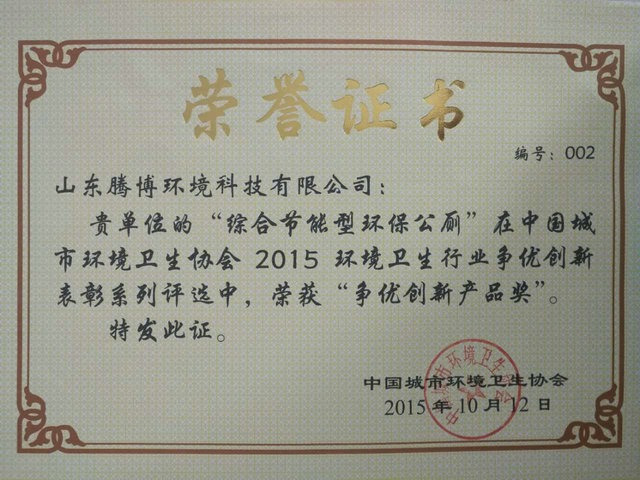 荣誉证书
编号：002
山东腾博环境科技有限公司：
贵单位的“综合节能型环保公厕”在中国城
市环境卫生协会 2015 环境卫生行业争优创新
表彰系列评选中，荣获“争优创新产品奖”。
特发此证。
中国城市环境卫生协会
2015 年 10 月 12 日
中国城市环境卫生协会